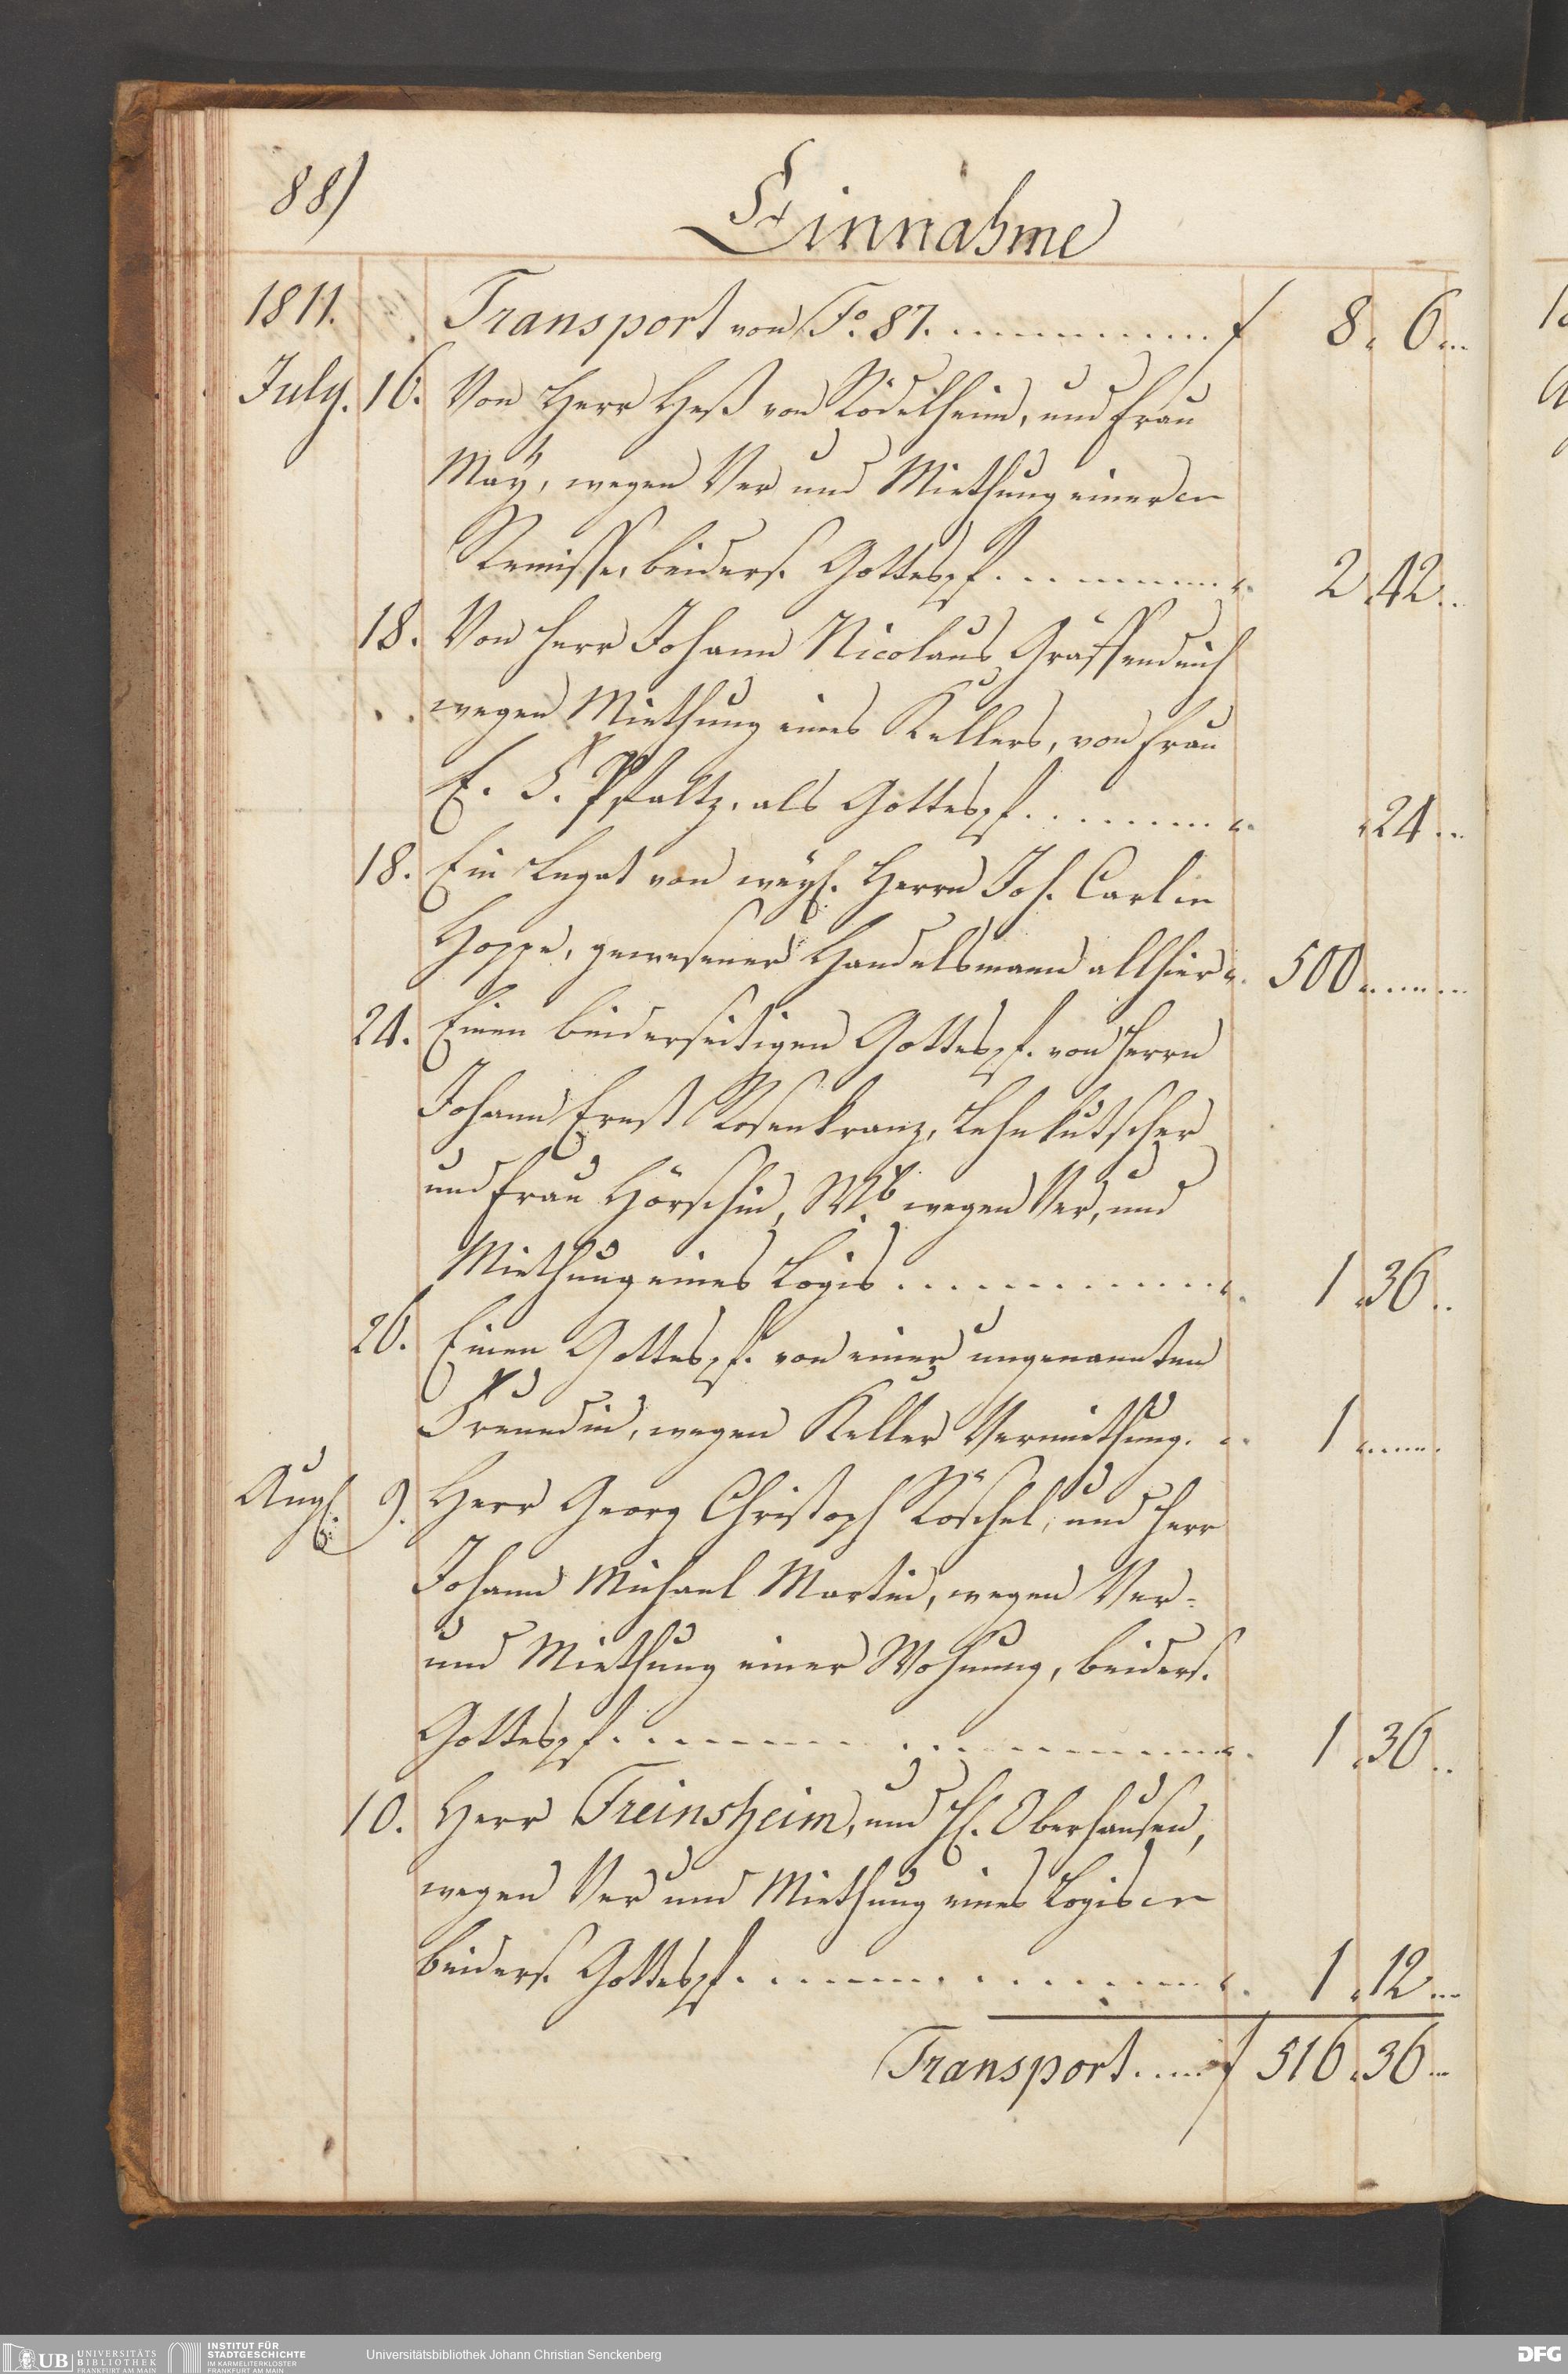 88)
Einnahme
1811. Transport von Fo. 87. . . . . . . . . . . . . f 8. 6...
July. 16. Von Herr Heß von Rödelheim, und Frau
May, wegen Ver und Miethung einer
Remisse, beiders. Gottespf. . . . . . . . . . 2. 42..
18. Von Herr Johann Nicolaus Gräffendeich
wegen Miethung eines Kellers, von Frau
E. F. Pfaltz, als Gottespf. . . . . . . . . . 24...
18. Ein Legat von weyl. Herrn Joh. Carl
Hoppe, gewesener Handelsmann allhier 500.........
24. Einen beiderseitigen Gottespf. von Herrn
Johann Ernst Rosenkranz, Lehnkutscher
und Frau Hörschin, Wb. wegen Ver, und
Miethung eines Logis . . . . . . . . . . . . . 1. 36..
26. Einen Gottespf. von einer ungenannten
Freundin, wegen Keller Vermiethung. 1........
Augs. 9. Herr Georg Christoph Röschel, und Herr
Johann Michael Martin, wegen Ver-
und Miethung einer Wohnung, beiders.
Gottespf. . . . . . . . . . . . . . . . . . . . 1. 36..
10. Herr Freinsheim, und H. Oberhausen,
wegen Ver und Miethung eines Logis
beiders. Gottespf. . . . . . . . . . . . . . . 1. 12...
Transport. . . . . f 516. 36...
UB UNIVERSITÄTS BIBLIOTHEK FRANKFURT AM MAIN
INSTITUT FÜR STADTGESCHICHTE IM KARMELITERKLOSTER FRANKFURT AM MAIN
Universitätsbibliothek Johann Christian Senckenberg
DFG